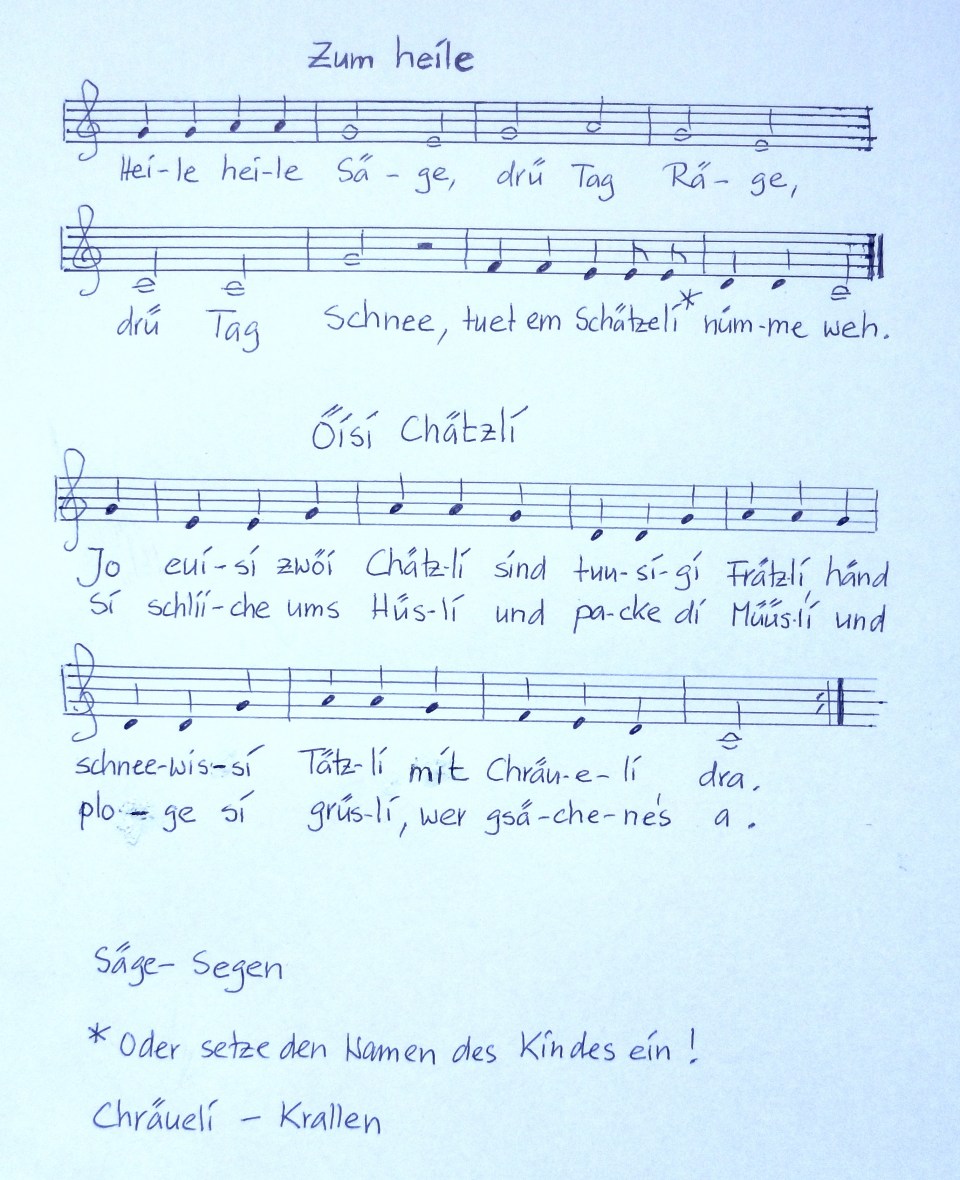 Zum heile
Hei-le hei-le Sä-ge, drü Tag Rä-ge,
drü Tag Schnee, tuet em Schätzeli* nüm-me weh.
Öisi Chätzli
Jo eui-si zwöi Chätz-li sind tuu-si-gi Frätzli, händ
Si schlii-che ums Hüs-li und pa-cke di Müüs-li und
schnee-wis-si Tätz-li mit Chräu-e-li dra.
plo-ge si grüs-li, wer gsä-che-ne's a.
Säge- Segen
* Oder setze den Namen des Kindes ein!
Chräueli - Krallen